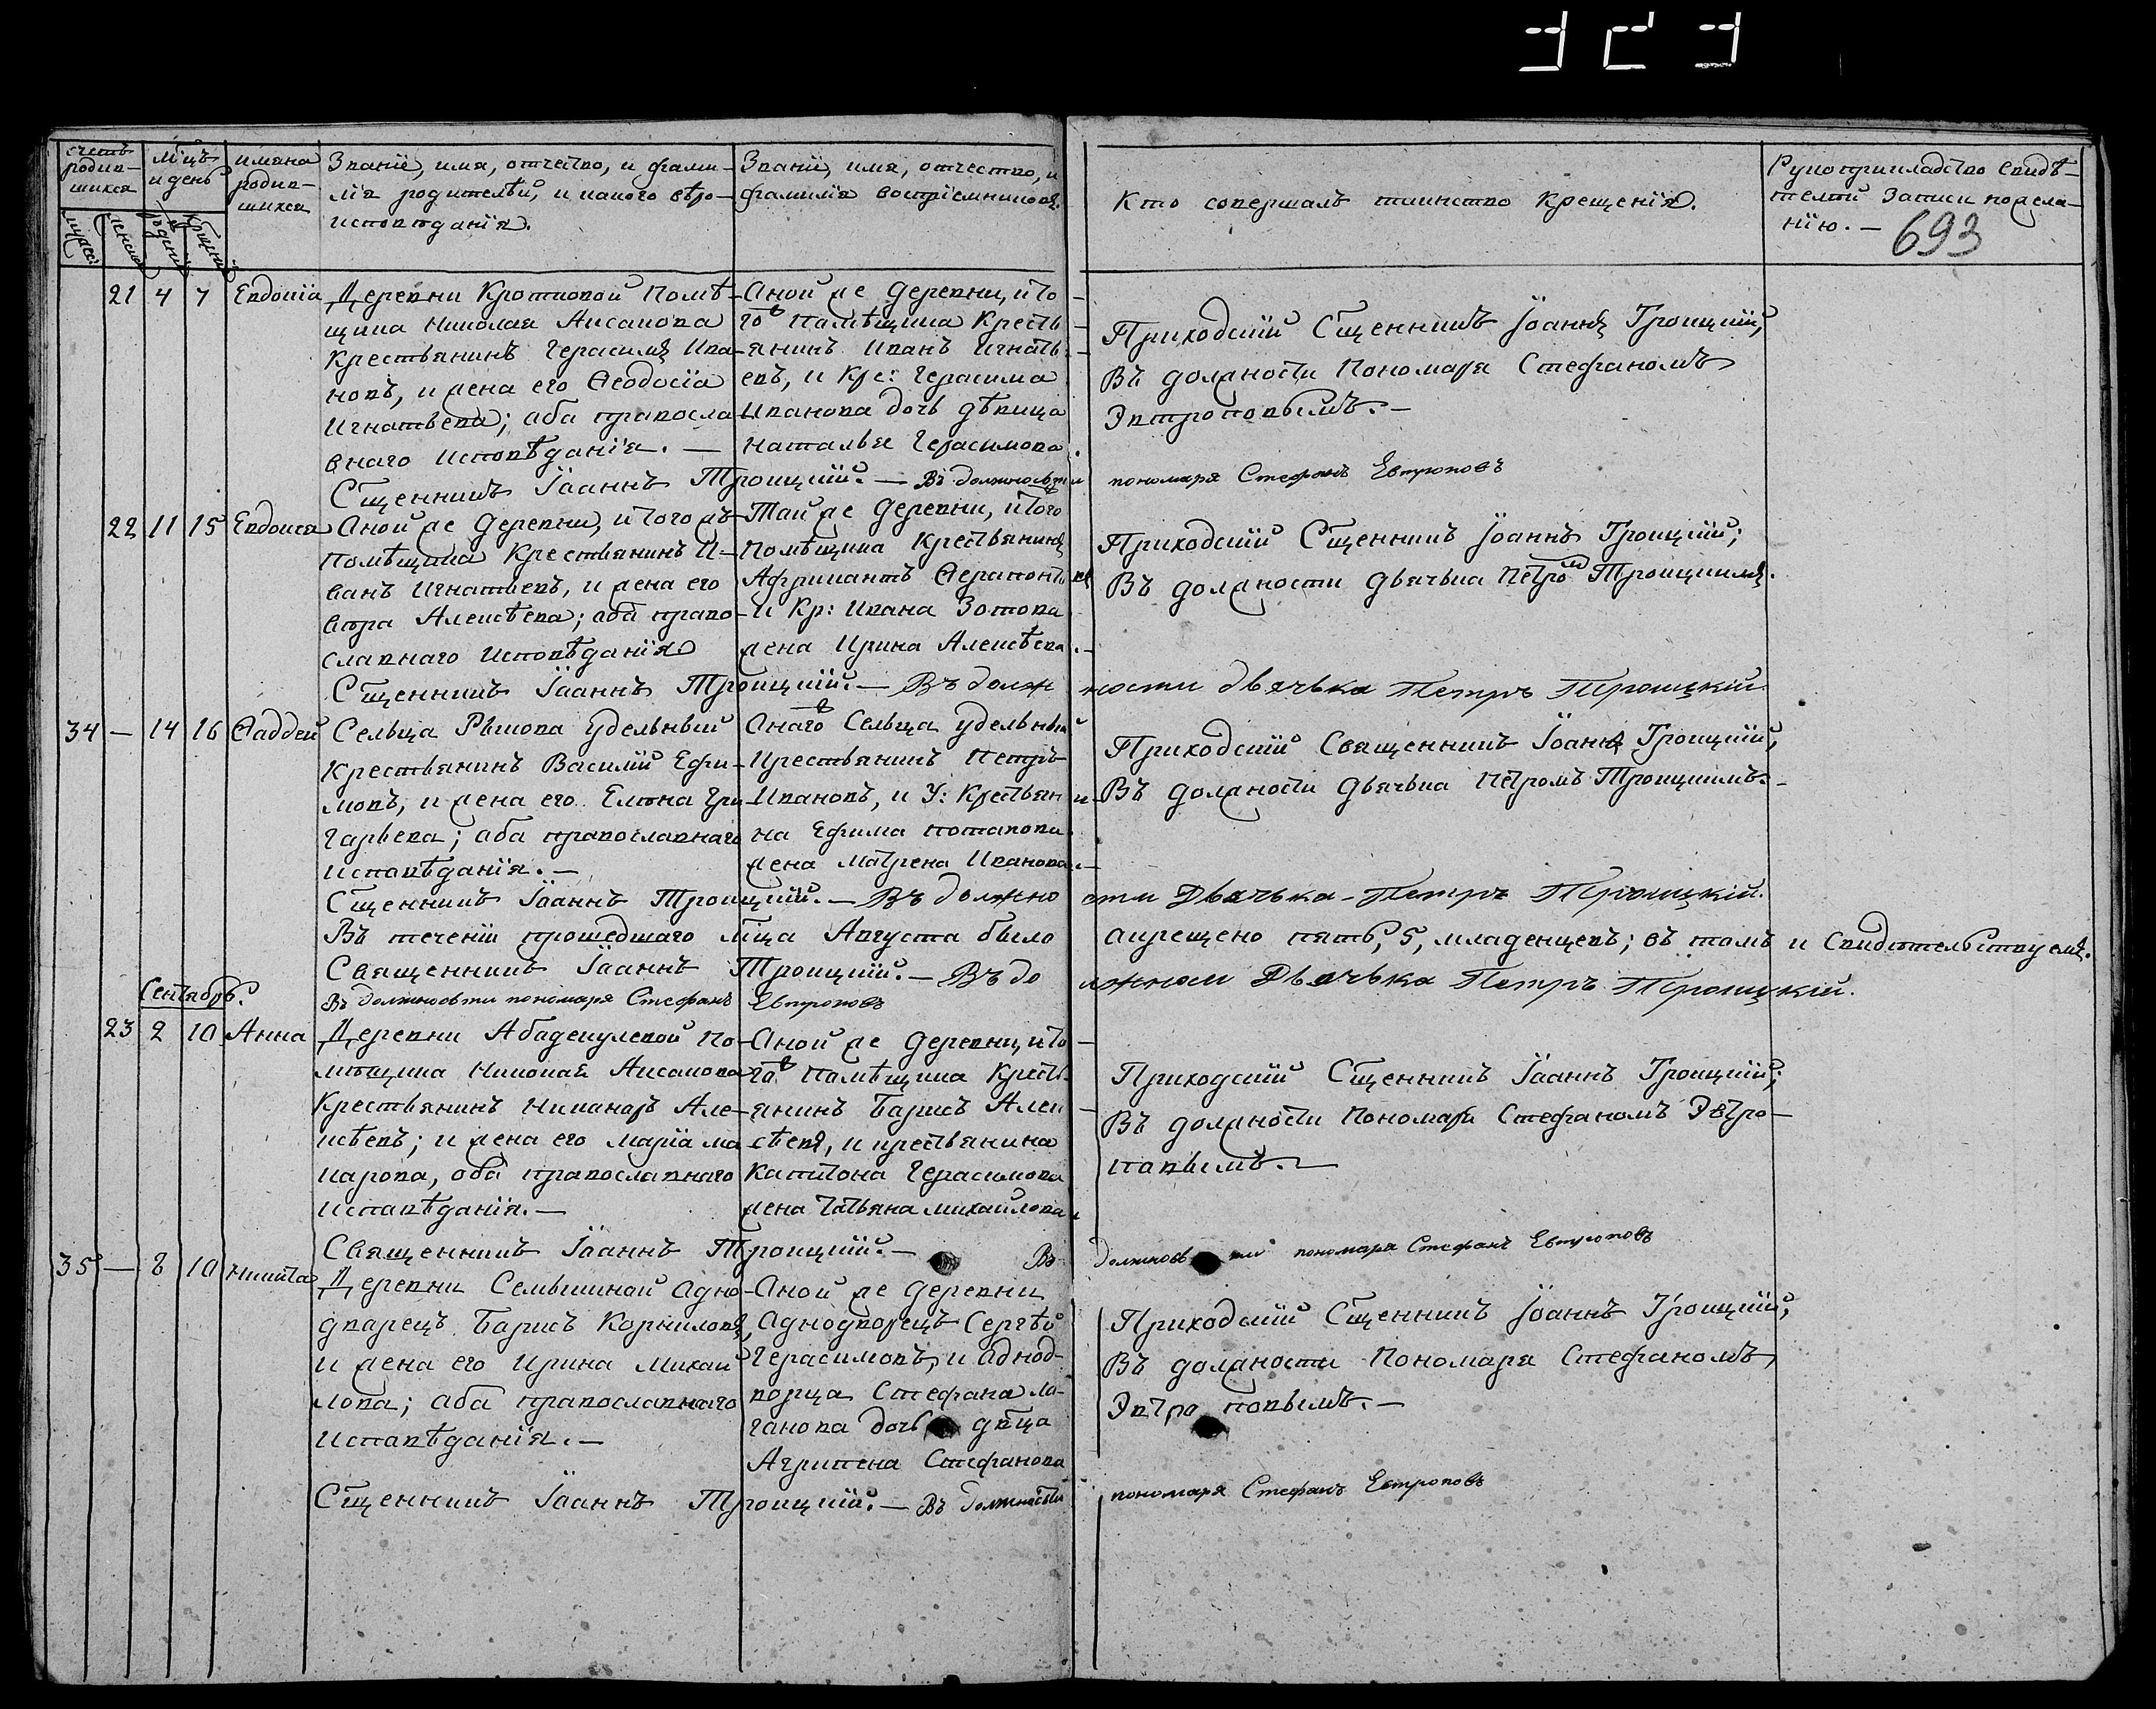 счетъ родив-шихся
мужеск:
женска
м͠цъ и день
рожденія
крещенія
имяна родив-шихся
Званіѣ, имя, отчество, и фами-
лія родителѣй, и какого вѣро-
исповѣданія.
Званіѣ, имя, отчество, и
фамилія воспріемниковъ.
Кто совершалъ таинство Крещенія.
Рукоприкладство свидѣ-
телей Записи по жела-
нію. —
693
21 4 7 Евдокія
Деревни Кротковой Помѣ-
щика Николая Аксакова
Крестьянинъ Герасимъ Ива-
новъ, и жена его Ѳеодосія
Игнатьева; аба правосла-
внаго исповѣданія. —
Оной же деревни, и то-
го Помѣщика Кресть-
янинъ Иванъ Игнать-
евъ, и Кре: Герасима
Иванова дочь дѣвица
Наталья Герасимова.
Приходскій Сщенникъ Іоаннъ Троицкій,
Въ должности Пономаря Стефаномъ
Эвтроповымъ. —
Сщенникъ Іоаннъ Троицкій. — Въ должности пономаря Стефанъ Евтроповъ
22 11 15 Евдокся
Оной же деревни, и того жъ
Помѣщика Крестьянинъ И-
ванъ Игнатьевъ, и жена его
Алексѣева; аба право-
славнаго исповѣданія
Той же деревни, и того
Помѣщика Крестьянинъ
Африкантъ Ѳерапонтовъ
и Кр: Ивана Зотова
жена Ирина Алексѣева. —
Приходскій Сщенникъ Іоаннъ Троицкій;
Въ должности дьячька Петромъ Троицкимъ.
Сщенникъ Іоаннъ Троицкій. — Въ должности дьячька Петръ Троицкій
34 — 14 16 Ѳаддей
Сельца Рыкова удельный
Крестьянинъ Василій Ефи-
мовъ, и жена его Елена Гри-
гарьева; аба православнаго
исповѣданія. —
Онаго Сельца удельный
Крестьянинъ Петръ
Ивановъ, и У: Крестьяни-
на Ефима потапова
жена Матрена Иванова. —
Приходскій Священникъ Іоаннъ Троицкій,
Въ должности дьячька Петромъ Троицкимъ. —
Сщенникъ Іоаннъ Троицкій. — Въ должности Дьячька — Петръ Троицкій.
Въ теченіи прошедшаго м͠ца Августа было акрещено пять, 5, младенцевъ; въ томъ и Свидѣтельствуемъ.
Священникъ Іоаннъ Троицкій. — Въ должном Дьячька Петръ Троицкій.
Сентябрь.
Въ должности пономаря Стефанъ Евтроповъ
23 2 10 Анна
Деревни Абадекулевой По-
мѣщика Николая Аксакова
Крестьянинъ Никаноръ Але-
ксѣевъ; и жена его марія ма-
карова, оба православнаго
исповѣданія. —
Оной же деревни, и то-
го Помѣщика Кресть-
янинъ Барисъ Алек-
сѣевъ, и крестьянина
Капитона Герасимова
жена Татьяна михайлова.
Приходскій Сщенникъ Іоаннъ Троицкій;
Въ должности Пономаря Стефаномъ Эвтро-
повымъ. —
Священникъ Іоаннъ Троицкій. — Въ должности пономаря Стефанъ Евтроповъ
35 — 8 10 Никита
Деревни Селькиной одно-
дварецъ Барисъ Корниловъ,
и жена его Ирина Михаи-
лова; аба православнаго
исповѣданія. —
Оной же деревни
Аднодворецъ Сергѣй
Герасимовъ, и аднод-
ворца Стефана ло-
ганова дочь дѣ͠ца
Агрипена Стефанова
Приходскій Сщенникъ Іоаннъ Троицкій,
Въ должности Пономаря Стефаномъ
Эвтроповымъ. —
Сщенникъ Іоаннъ Троицкій. — Въ должности пономаря Стефанъ Евтроповъ